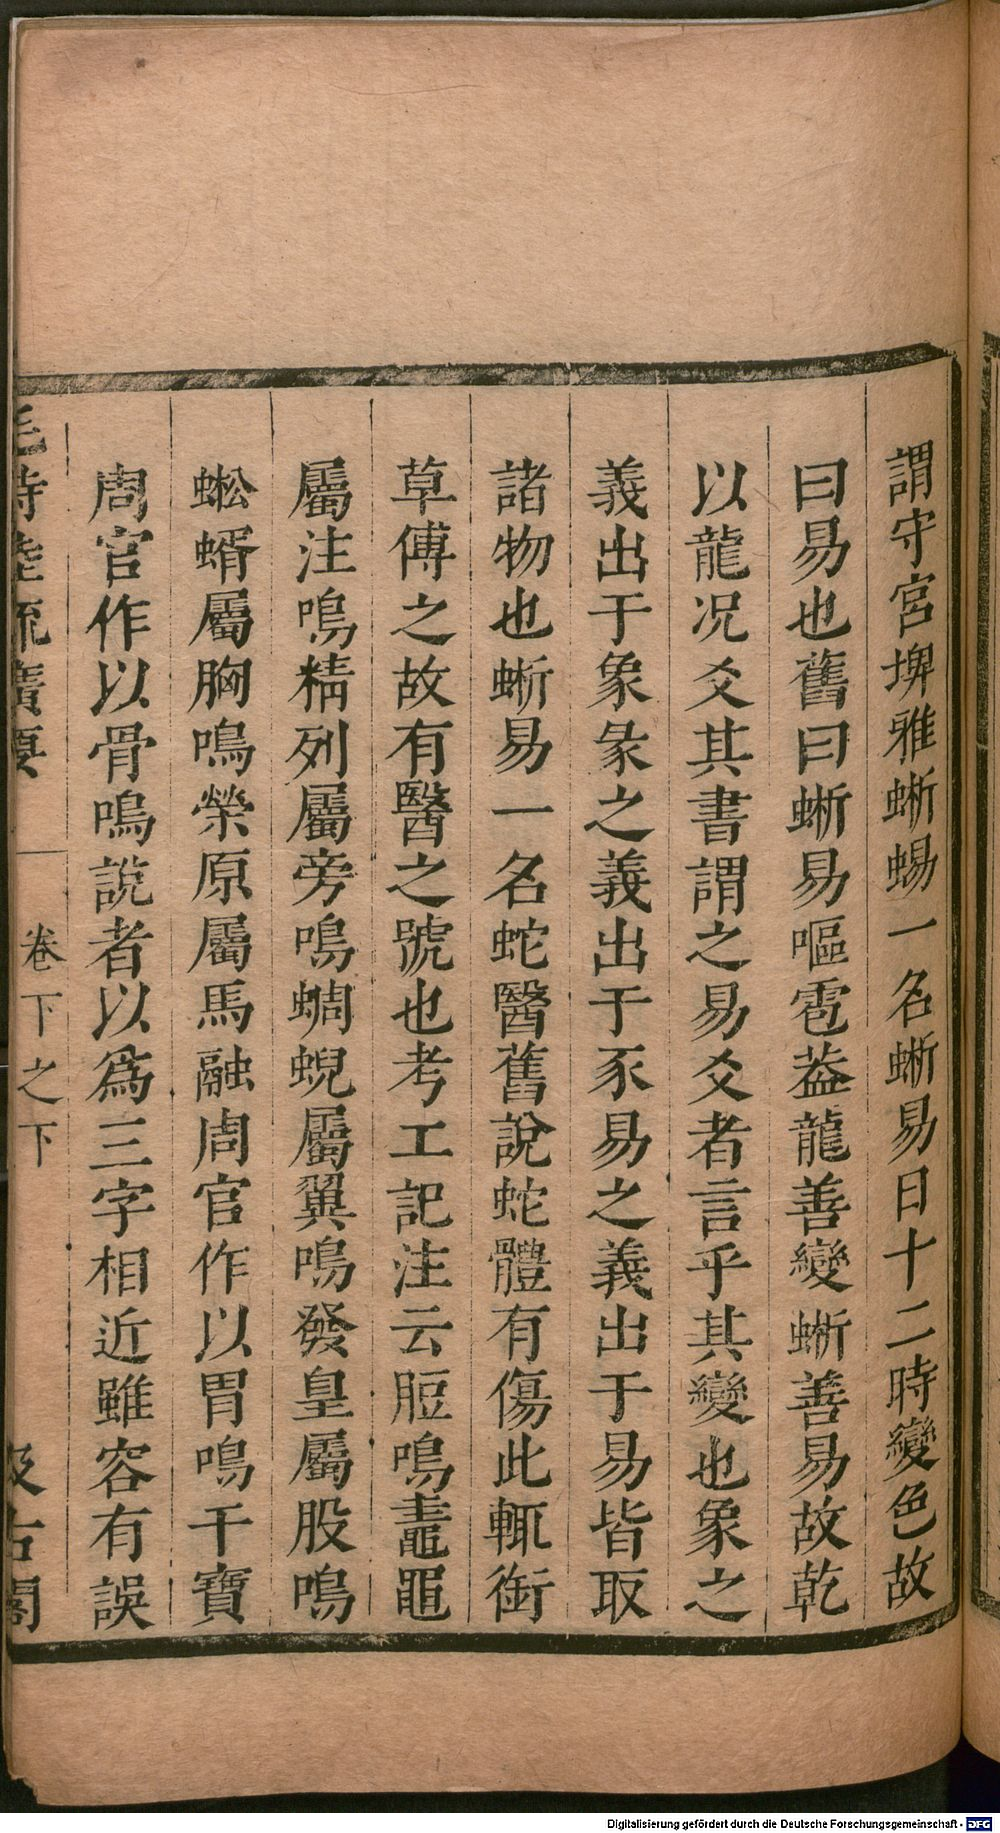 謂守宮埤雅蜥蜴一名蜥易日十二時變色故
曰易也舊曰蜥易嘔雹葢龍善變蜥善易故乾
以龍况爻其書謂之易爻者言乎其變也象之
義出于象彖之義出于豕易之義出于易皆取
諸物也蜥易一名蛇醫舊說蛇體有傷此輒銜
草傅之故有醫之號也考工記注云脰鳴鼃黽
屬注鳴精列屬旁鳴蜩蜺屬翼鳴發皇屬股鳴
蜙蝑屬胸鳴榮原屬馬融周官作以胃鳴干寶
周官作以骨鳴說者以爲三字相近雖容有誤
毛詩陸疏廣要
卷下之下
汲古閣
Digitalisierung gefördert durch die Deutsche Forschungsgemeinschaft - DFG